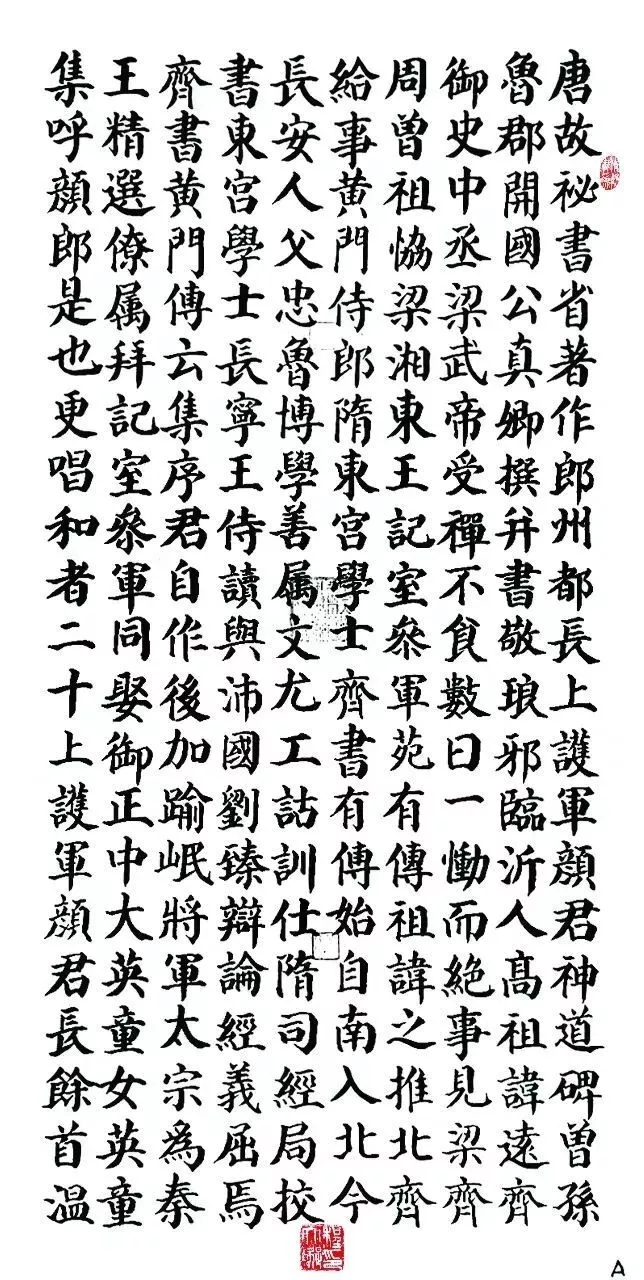 唐故祕書省著作郎州都長上護軍顏君神道碑曾孫
魯郡開國公真卿撰并書敬琅邪臨沂人高祖諱遠齊
御史中丞梁武帝受禪不食數日一慟而絕事見梁齊
周曾祖恊梁湘東王記室叅軍苑有傳祖諱之推北齊
給事黃門侍郎隋東宮學士齊書有傳始自南入北今
長安人父忠魯博學善属文尤工詁訓仕隋司經局挍
書東宮學士長寧王侍讀與沛國劉臻辯論經義屈焉
齊書黃門傳云集序君自作後加踰岷將軍太宗為秦
王精選僚属拜記室叅軍同娶御正中大英童女英童
集呼顏郎是也更唱和者二十上護軍顏君長餘首溫
A